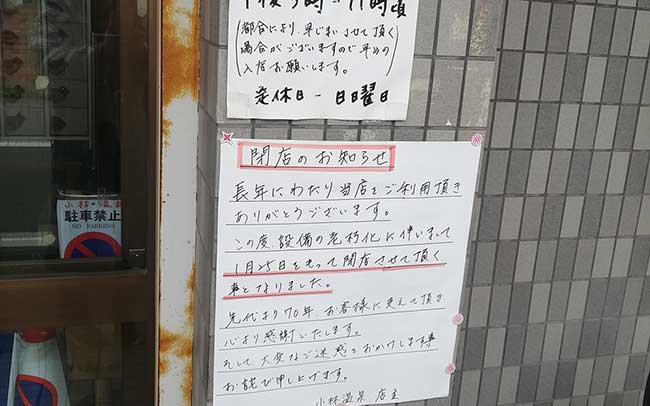 午後3時-11時頃
(都合により、早じまいさせて頂く
場合がございますので早めの
入店お願いします。)
定休日-日曜日
閉店のお知らせ
長年にわたり当店をご利用頂き
ありがとうございます。
この度、設備の老朽化に伴いまして
1月25日をもって閉店させて頂く
事となりました。
先代より70年、お客様に支えて頂き
心より感謝いたします。
そして、大変なご迷惑をおかけします事
お詫び申し上げます。
小林温泉 店主
小林温泉
駐車禁止
NO PARKING